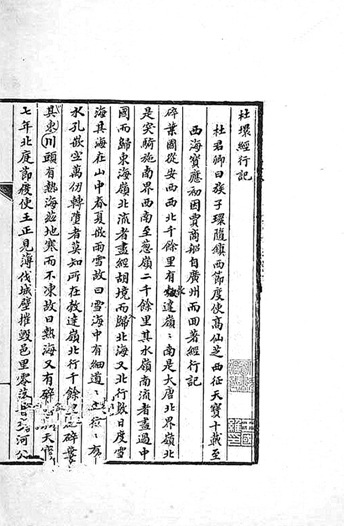 杜環經行記
杜君卿曰族子環隨鎮西節度使高仙芝西征天寶十載至
西海寶應初因賈商船自廣州而回著經行記
碎葉國從安西西北千餘里有達嶺〻南是大唐北界嶺北
是突騎施南界西南至葱嶺二千餘里其水嶺南流者盡過中
國而歸東海嶺北流者盡經胡境而歸北海又北行數日度雪
海其海在山中春夏嵌雨雪故曰雪海中有細道〻〻有
水孔嵌空萬仞轉墮者莫知所在敦達嶺北行千餘里至碎葉
其東川頭有熱海茲地寒而不凍故曰熱海又有碎天寶
七年北庭節度使王正見薄伐城壁摧毀邑里零落河公